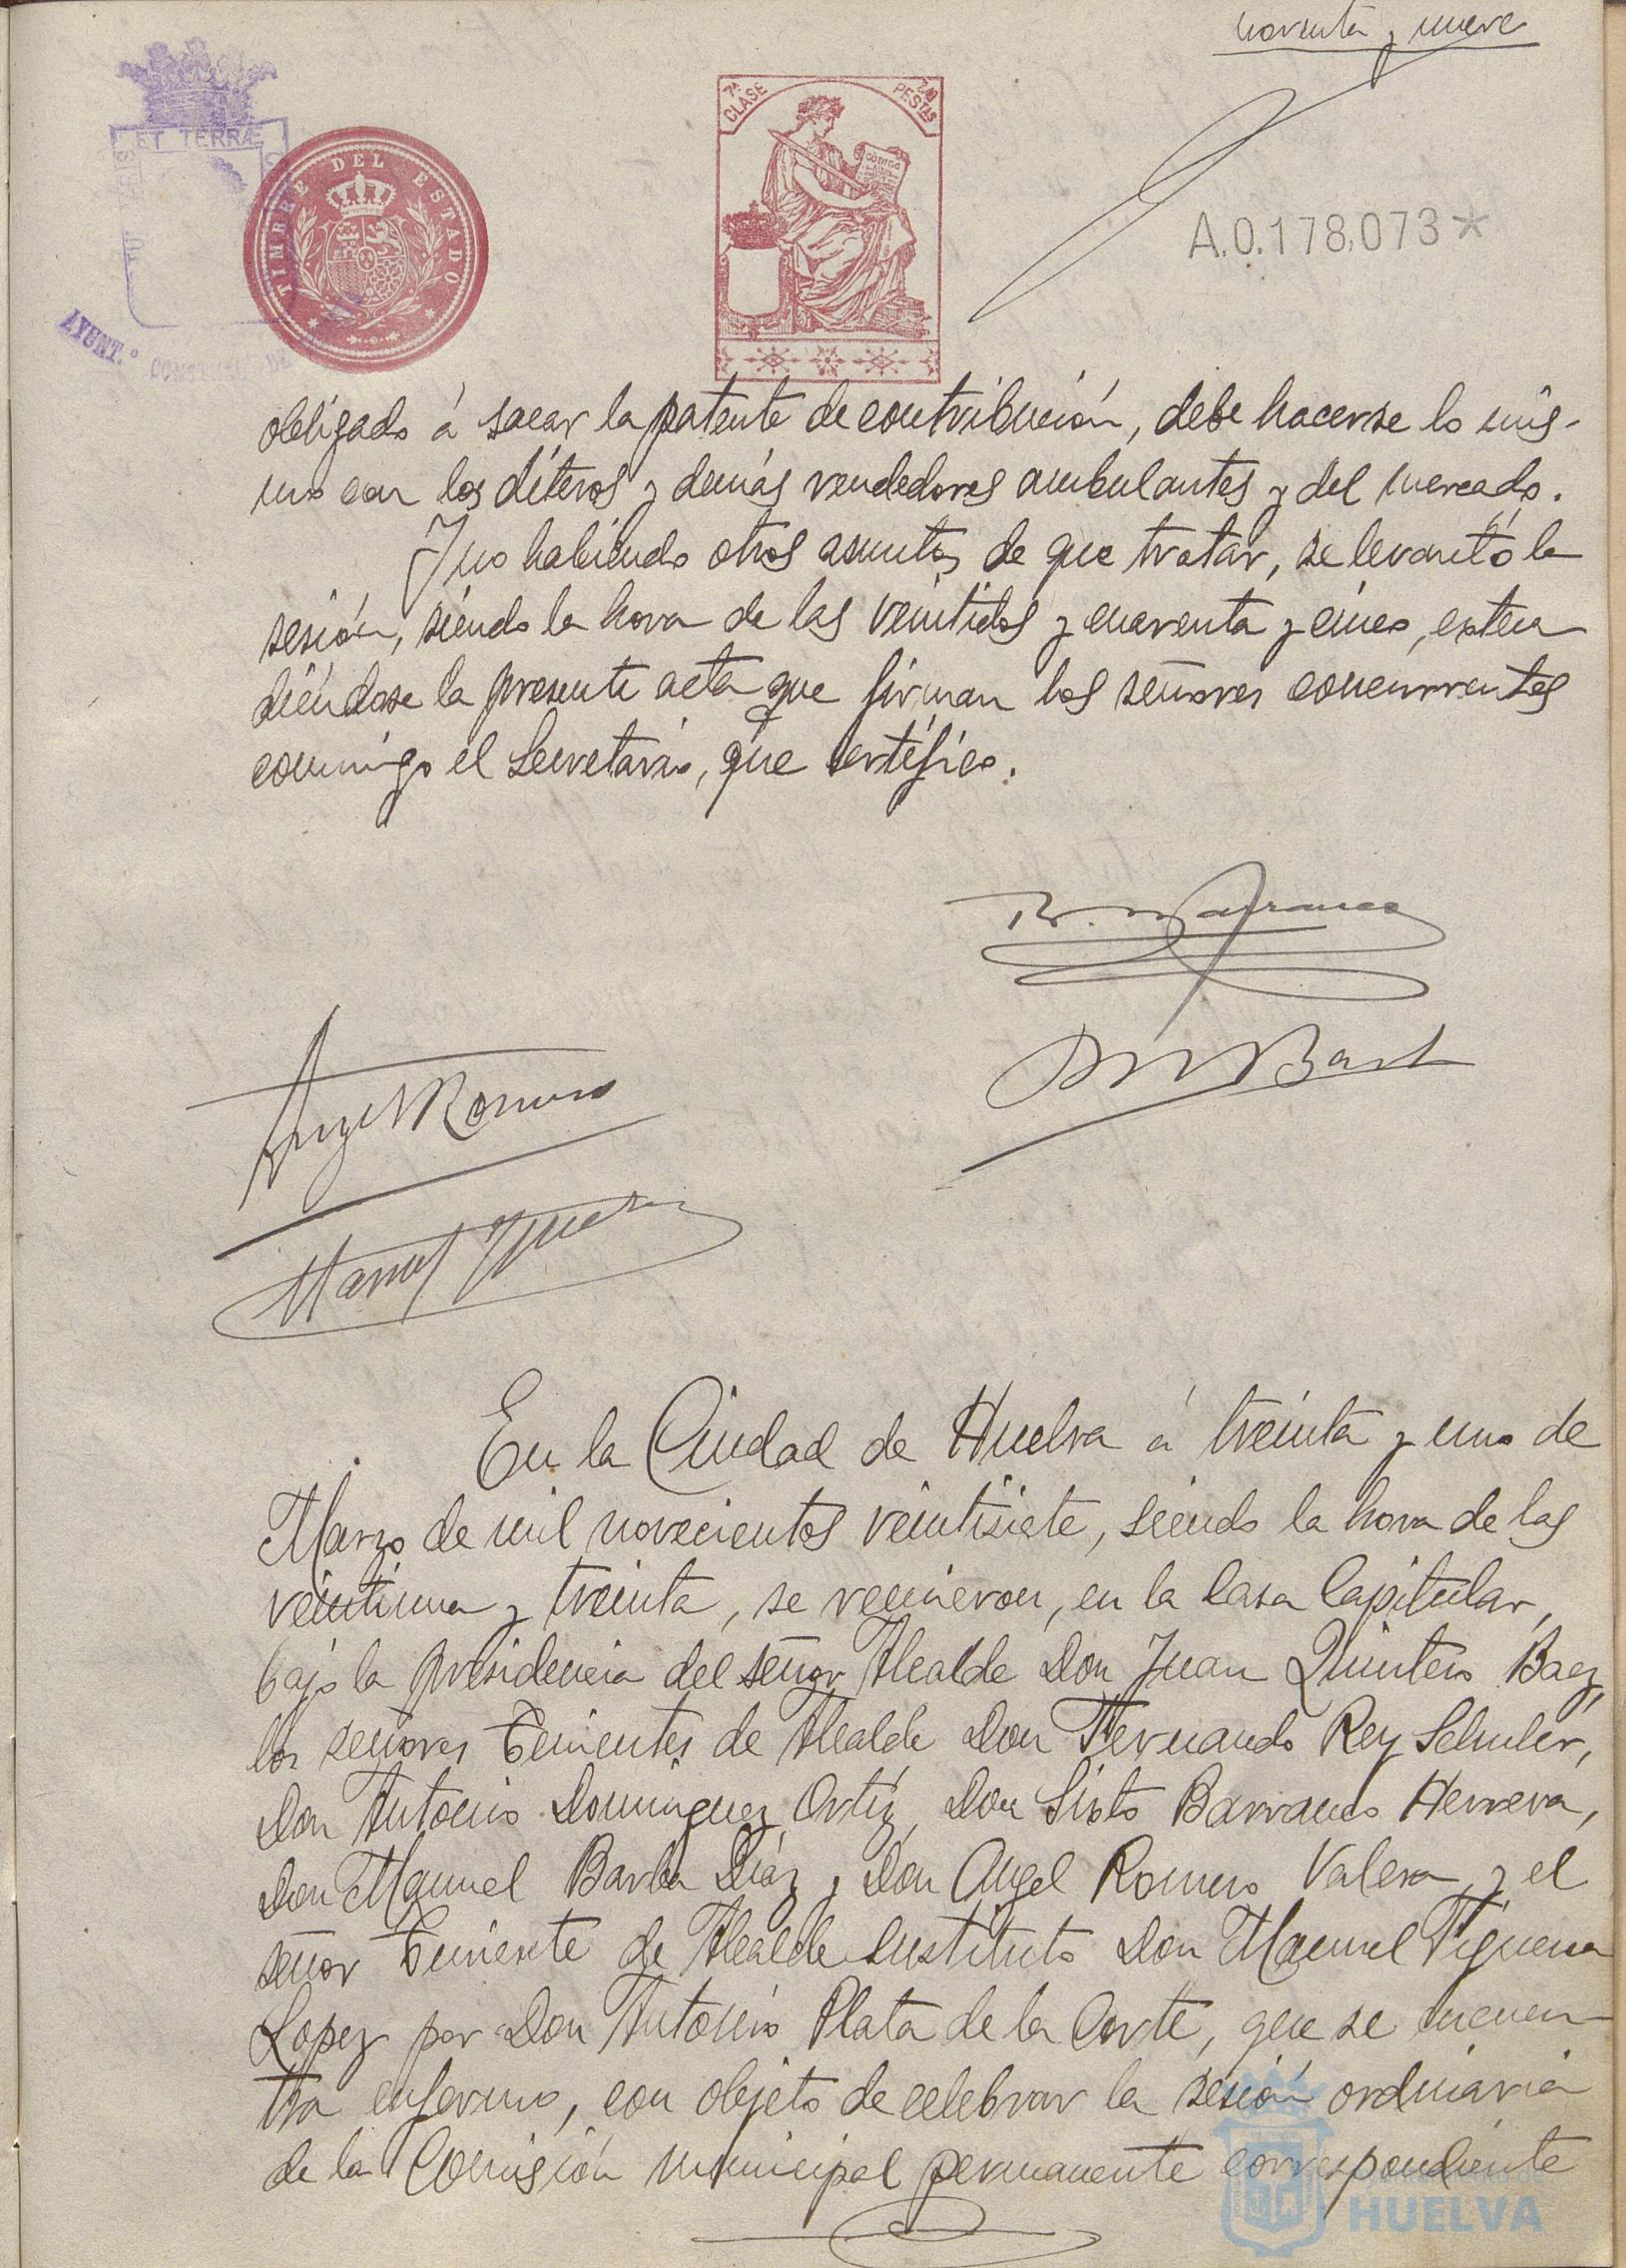 noventa y nueve
ET TERRÆ
TIMBRE DEL ESTADO
7ª CLASE
PESTAS
CODIGO
A.0.178,073*
AYUNT.º CONSTIT. DE
obligado á sacar la patente de contribución, debe hacerse lo mis-
mo con los díteros y demás vendedores ambulantes y del mercado.
Y no habiendo otros asuntos de que tratar, se levantó la
sesión, siendo la hora de las veintidos y cuarenta y cinco, exten
diéndose la presente acta que firman los señores concurrentes
conmigo el Secretario, que certifico.
Angel Romero
Manuel
En la Ciudad de Huelva á treinta y uno de
Marzo de mil novecientos veintisiete, siendo la hora de las
veintiuna y treinta, se reunieron, en la Casa Capitular,
bajo la presidencia del señor Alcalde Don Juan Quintero Baez,
los señores Tenientes de Alcalde Don Fernando Rey Schuler,
Don Antonio Dominguez Ortiz, Don Sixto Barranco Herrera,
Don Manuel Barba Díaz y Don Angel Romero Valera y el
señor Teniente de Alcalde sustituto Don Manuel Figueroa
Lopez por Don Antonio Plata de la Corte, que se encuen-
tra enfermo, con objeto de celebrar la sesión ordinaria
de la Comisión municipal permanente correspondiente
HUELVA